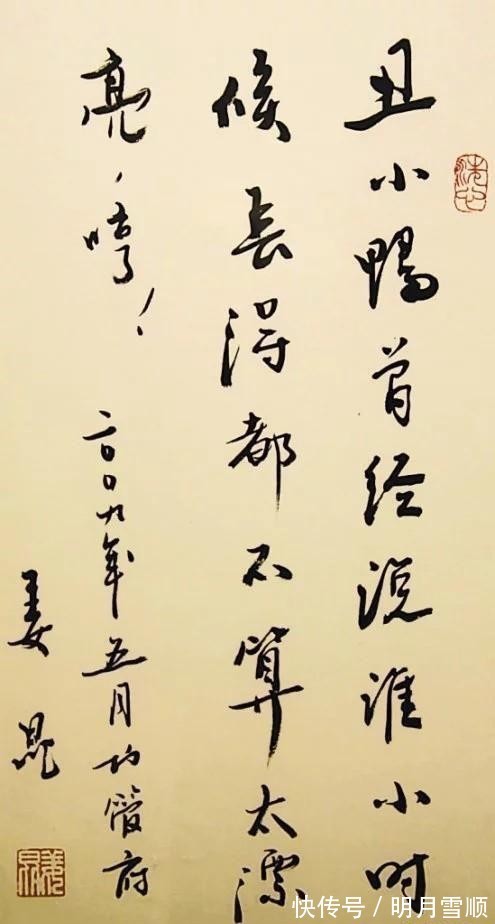 丑小鸭曾经说谁小时
候长得都不算太漂
亮，哼！
二〇〇九年五月管府
姜昆
姜昆
快传号 / 明月雪顺